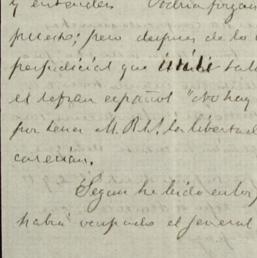 y entender. Podria forzar
puesto; pero despues de lo
perjudicial que inútil
el refran español "No hay
por tener M.R.S. la libertad
carecian.
Segun he leido en los
habia ocupado el general